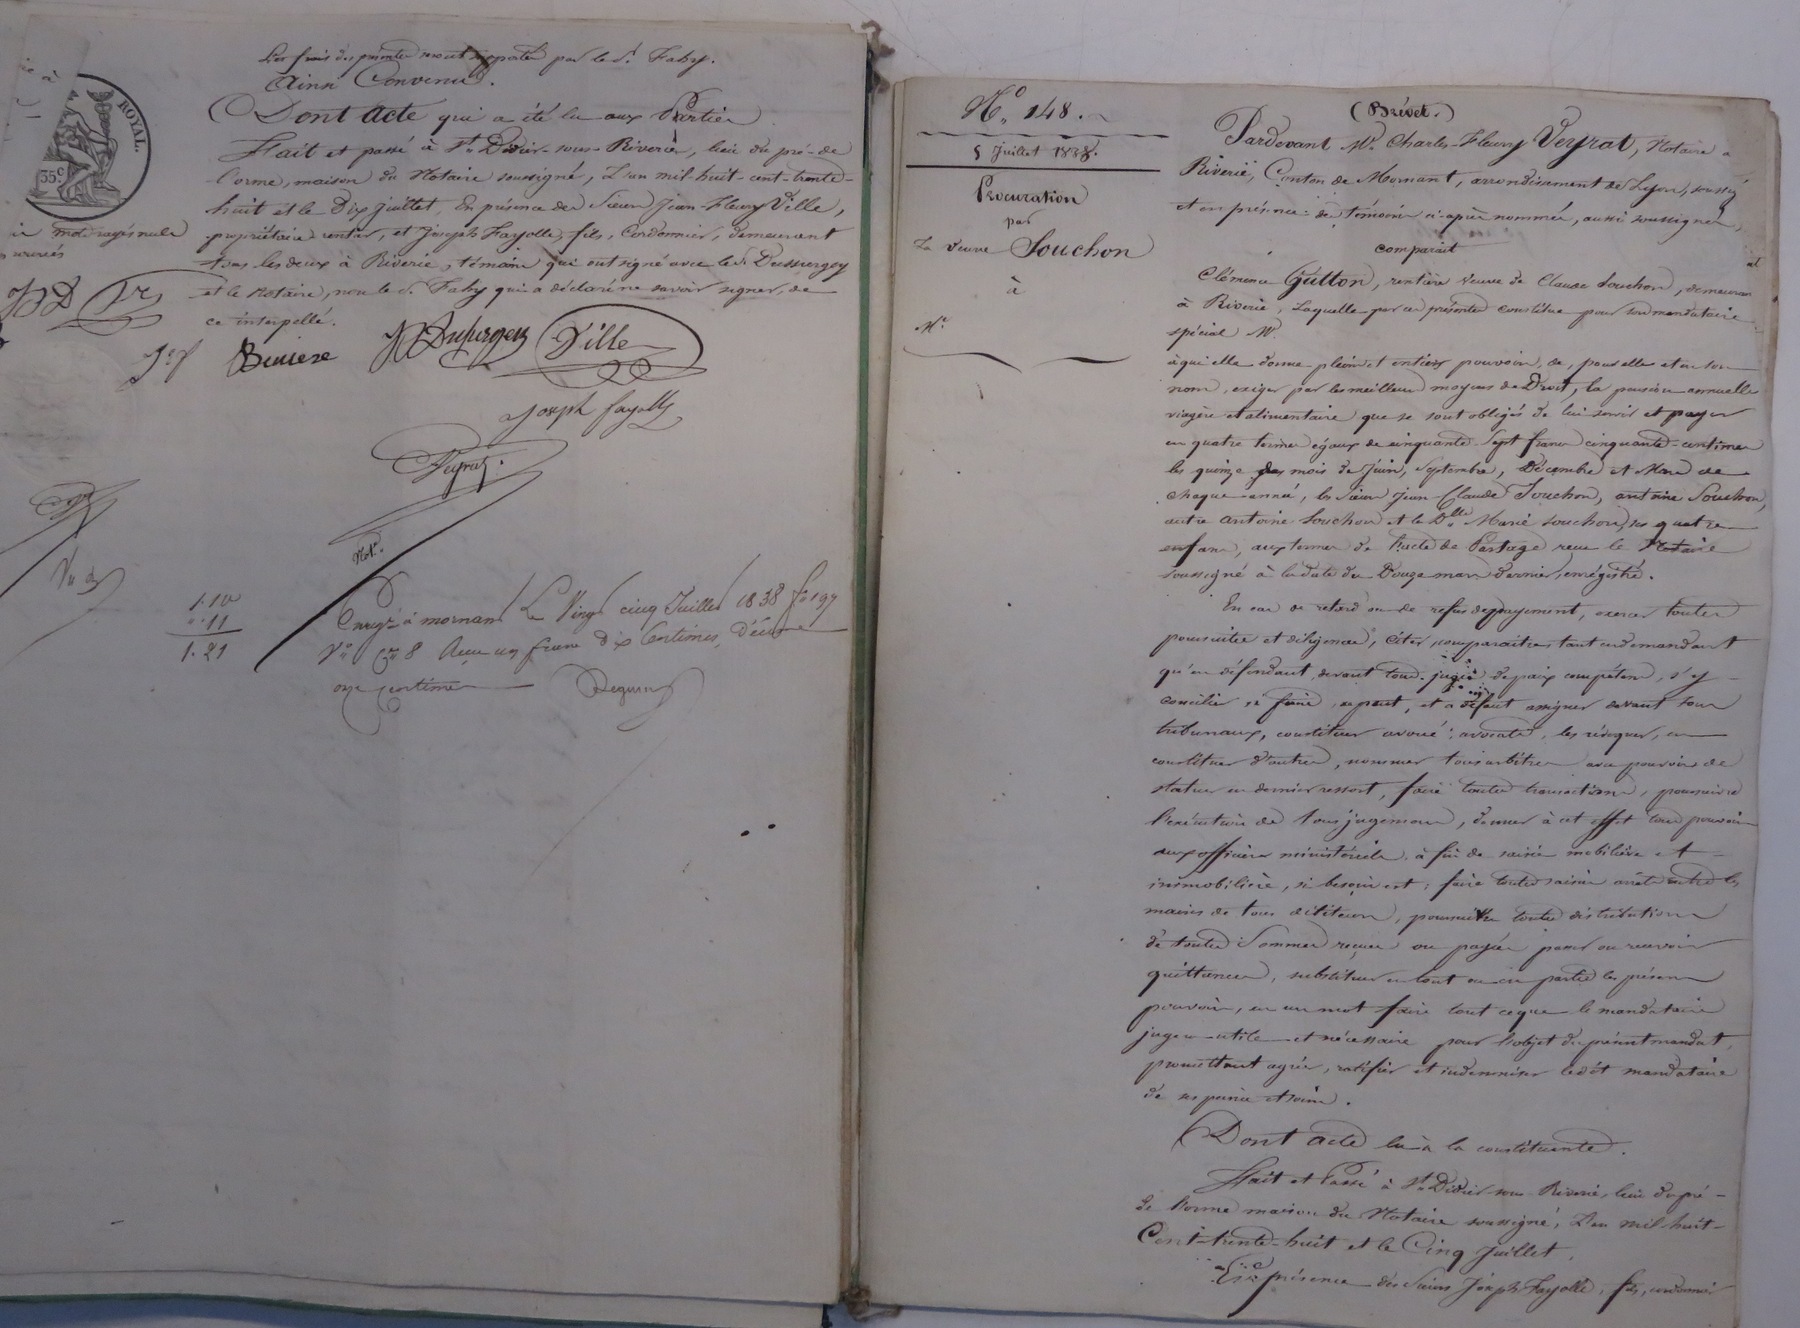 Les frais des présentes seront supportés par le sr. Fahy.
Ainsi Convenu.
Dont Acte qui a été lu aux Parties
Fait et passé à St. Didier-sous-Riverie, lieu du pré-de
l'orme, maison du Notaire soussigné, L'an mil-huit-cent-trente-
huit et le Dix juillet, En présence des Sieurs Jean-Fleury Ville,
propriétaire rentier, et Joseph Fayolle, fils, Cordonnier, demeurant
tous les deux à Riverie, témoins qui ont signé avec le Sr. Dussurgey
et le Notaire, non le Sr. Fahy qui a déclaré ne savoir signer, de
ce interpellé.
ROYAL.
35c
mots rayés nuls
Ville
Joseph fayolle
Veyrat
Not.
1.10
.11
1.21
Enregé à mornant Le Vingt cinq Juillet 1838 fo 197
Vo Ce 8 Reçu un franc dix Centimes, Décime
onze centimes
No. 148.
5 Juillet 1838.
Procuration
par
La veuve Souchon
à
Mr.
(Brévet.)
Pardevant Me. Charles-Fleury Veyrat, Notaire à
Riverie, Canton de Mornant, arrondissement de Lyon, soussigné
et en présence des témoins ci-après nommés, aussi soussignés,
comparait
Clémence Guitton, rentière veuve de Claude Souchon, demeurant
à Riverie, Laquelle par ces présentes constitue pour son mandataire
spécial Mr.
à qui elle donne plein et entier pouvoir, de, pour elle et en son
nom, exiger par les meilleurs moyens de Droit, la pension annuelle
viagère et alimentaire que se sont obligés de lui servir et payer
en quatre termes égaux de cinquante-Sept francs cinquante-centimes
les quinze des mois de Juin, Septembre, Décembre et Mars de
chaque année, les Sieurs Jean-Claude Souchon, antoine Souchon,
autre antoine Souchon et la Dlle. Marie Souchon, ses quatre
enfans, aux termes de l'acte de Partage reçu le Notaire
soussigné à la date du Douze mars dernier, enrégistré.
En cas de retard ou de refus de payement, exercer toutes
poursuites et diligences, citer, comparaitre, tant en demandant
qu'en défendant, devant tous juges de paix compétens, s'y
concilier si faire se peut, et à défaut assigner devant tous
tribunaux, constituer avoués, avocats, les révoquer, en
constituer d'autres, nommer tous arbitres avec pouvoirs de
statuer en dernier ressort, faire toutes transactions, poursuivre
l'exécution de tous jugemens, donner à cet effet tous pouvoirs
aux officiers ministériels à fin de saisie mobilière et
immobilière, si besoin est; faire toutes saisies arrêts entre les
mains de tous débiteurs, poursuivre toutes distributions
de toutes Sommes reçues ou payées passer ou recevoir
quittances, substituer en tout ou en partie les présens
pouvoirs, en un mot faire tout ceque le mandataire
jugera utile et nécessaire pour l'objet du présent mandat,
promettant agréer, ratifier et indemniser ledit mandataire
de ses peines et soins.
Dont acte lu à la constituante.
Fait et Passé à St. Didier-sous-Riverie, lieu du pré-
de l'orme maison du Notaire soussigné, L'an mil-huit-
Cent-trente-huit et le Cinq Juillet,
En présence des Sieurs Joseph Fayolle, fils, cordonnier